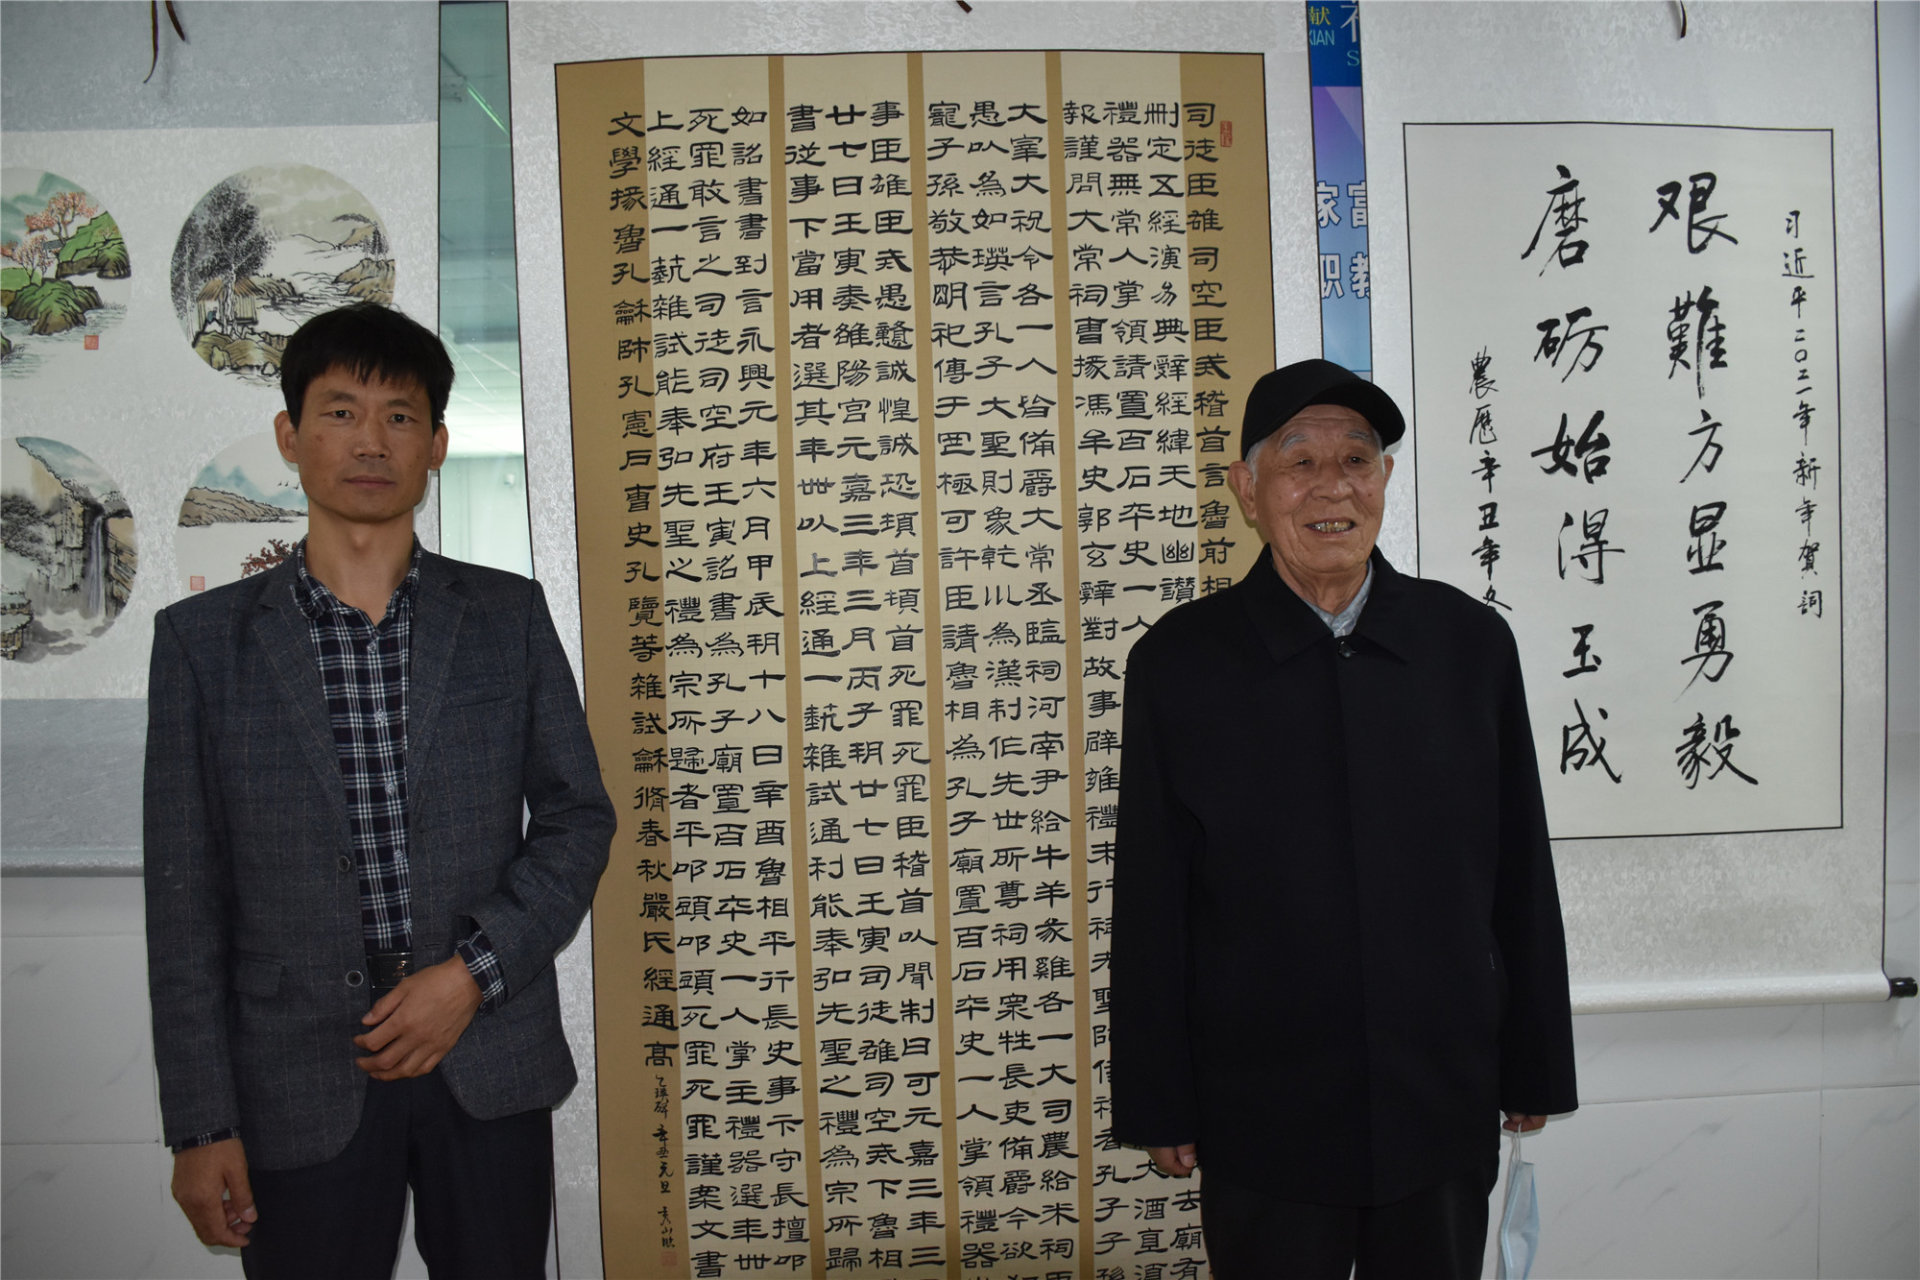 习近平二〇二一年新年賀詞
艰難方显勇毅
磨砺始得玉成
農歷辛丑年
司徒臣雄司空臣戒稽首言魯前相
刪定五經演易典辭經緯天地幽讃
禮器無常人掌領請置百石卒史一人
報謹問大常祠曹掾馮牟史郭玄辭對故事辟雍禮未行祠先聖師侍祠者孔子子孫
大宰大祝令各一人皆備爵大常丞臨祠河南尹給牛羊豕雞各一大司農給米祠臣
愚以為如瑛言孔子大聖則象乾巛為漢制作先世所尊祠用眾牲長吏備爵今欲
寵子孫敬恭明祀傳于罔極可許臣請魯相為孔子廟置百石卒史一人掌領禮器
事臣雄臣戒愚戇誠惶誠恐頓首頓首死罪死罪臣稽首以聞制曰可元嘉三年三
廿七日壬寅奏雒陽宮元嘉三年三月丙子朔廿七日壬寅司徒雄司空戒下魯相
書從事下當用者選其年卌以上經通一藝雜試通利能奉弘先聖之禮為宗所歸
如詔書書到言永興元年六月甲辰朔十八日辛酉魯相平行長史事卞守長擅叩
死罪敢言之司徒司空府壬寅詔書為孔子廟置百石卒史一人掌主禮器選年卌
上經通一藝雜試能奉弘先聖之禮為宗所歸者平叩頭叩頭死罪死罪謹案文書
文學掾魯孔龢師孔憲戶曹史孔覽等雜試龢脩春秋嚴氏經通高
乙瑛碑 辛丑元旦
献
XIAN
家富
职教